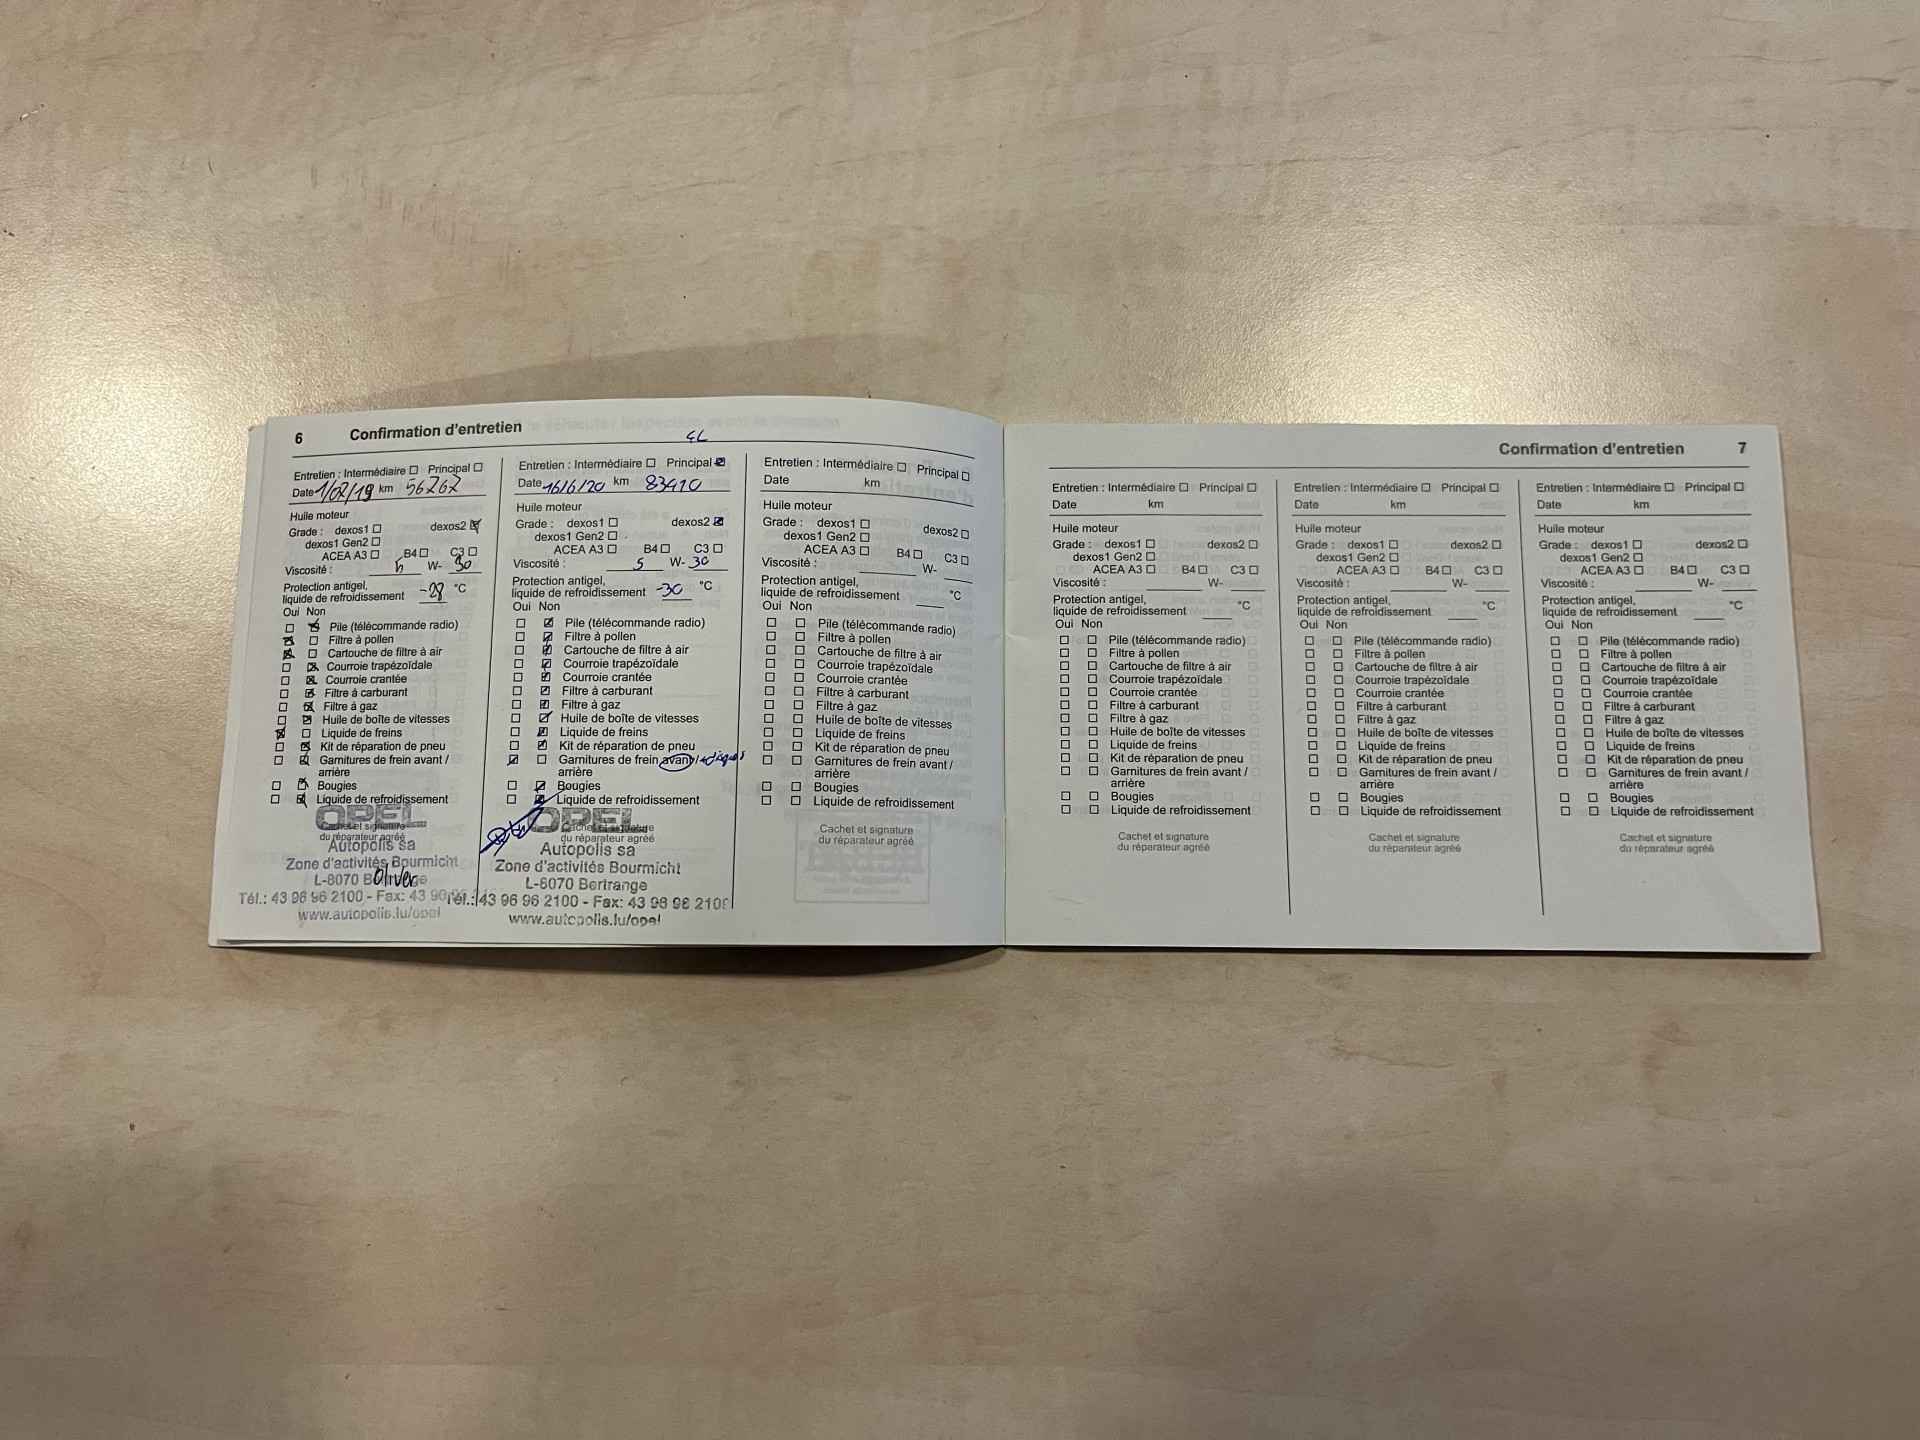 6 Confirmation d'entretien
4L
Entretien : Intermédiaire ☐ Principal ☐
Date 1/07/19 km 56767
Huile moteur
Grade : dexos1 ☐ dexos2 ☒
dexos1 Gen2 ☐
ACEA A3 ☐ B4 ☐ C3 ☐
Viscosité : 5 W- 30
Protection antigel,
liquide de refroidissement -28 °C
Oui Non
☐ ☒ Pile (télécommande radio)
☒ ☐ Filtre à pollen
☒ ☐ Cartouche de filtre à air
☐ ☒ Courroie trapézoïdale
☐ ☒ Courroie crantée
☐ ☒ Filtre à carburant
☐ ☒ Filtre à gaz
☐ ☒ Huile de boîte de vitesses
☒ ☐ Liquide de freins
☐ ☒ Kit de réparation de pneu
☐ ☒ Garnitures de frein avant /
arrière
☐ ☒ Bougies
☐ ☒ Liquide de refroidissement
OPEL
Cachet et signature
du réparateur agréé
Autopolis sa
Zone d'activités Bourmicht
L-8070
Oliver
Tél.: 43 96 96 2100 - Fax: 43 96 96
www.autopolis.lu/opel
Entretien : Intermédiaire ☐ Principal ☒
Date 16/6/20 km 83410
Huile moteur
Grade : dexos1 ☐ dexos2 ☒
dexos1 Gen2 ☐
ACEA A3 ☐ B4 ☐ C3 ☐
Viscosité : 5 W- 30
Protection antigel,
liquide de refroidissement -30 °C
Oui Non
☐ ☒ Pile (télécommande radio)
☐ ☒ Filtre à pollen
☐ ☒ Cartouche de filtre à air
☐ ☒ Courroie trapézoïdale
☐ ☒ Courroie crantée
☐ ☒ Filtre à carburant
☐ ☒ Filtre à gaz
☐ ☒ Huile de boîte de vitesses
☐ ☒ Liquide de freins
☐ ☒ Kit de réparation de pneu
☒ ☐ Garnitures de frein avant / + disques
arrière
☐ ☒ Bougies
☐ ☒ Liquide de refroidissement
OPEL
Cachet et signature
du réparateur agréé
Autopolis sa
Zone d'activités Bourmicht
L-8070 Bertrange
Tél.: 43 96 96 2100 - Fax: 43 96 96 2109
www.autopolis.lu/opel
Entretien : Intermédiaire ☐ Principal ☐
Date km
Huile moteur
Grade : dexos1 ☐ dexos2 ☐
dexos1 Gen2 ☐
ACEA A3 ☐ B4 ☐ C3 ☐
Viscosité : W-
Protection antigel,
liquide de refroidissement °C
Oui Non
☐ ☐ Pile (télécommande radio)
☐ ☐ Filtre à pollen
☐ ☐ Cartouche de filtre à air
☐ ☐ Courroie trapézoïdale
☐ ☐ Courroie crantée
☐ ☐ Filtre à carburant
☐ ☐ Filtre à gaz
☐ ☐ Huile de boîte de vitesses
☐ ☐ Liquide de freins
☐ ☐ Kit de réparation de pneu
☐ ☐ Garnitures de frein avant /
arrière
☐ ☐ Bougies
☐ ☐ Liquide de refroidissement
Cachet et signature
du réparateur agréé
Confirmation d'entretien 7
Entretien : Intermédiaire ☐ Principal ☐
Date km
Huile moteur
Grade : dexos1 ☐ dexos2 ☐
dexos1 Gen2 ☐
ACEA A3 ☐ B4 ☐ C3 ☐
Viscosité : W-
Protection antigel,
liquide de refroidissement °C
Oui Non
☐ ☐ Pile (télécommande radio)
☐ ☐ Filtre à pollen
☐ ☐ Cartouche de filtre à air
☐ ☐ Courroie trapézoïdale
☐ ☐ Courroie crantée
☐ ☐ Filtre à carburant
☐ ☐ Filtre à gaz
☐ ☐ Huile de boîte de vitesses
☐ ☐ Liquide de freins
☐ ☐ Kit de réparation de pneu
☐ ☐ Garnitures de frein avant /
arrière
☐ ☐ Bougies
☐ ☐ Liquide de refroidissement
Cachet et signature
du réparateur agréé
Entretien : Intermédiaire ☐ Principal ☐
Date km
Huile moteur
Grade : dexos1 ☐ dexos2 ☐
dexos1 Gen2 ☐
ACEA A3 ☐ B4 ☐ C3 ☐
Viscosité : W-
Protection antigel,
liquide de refroidissement °C
Oui Non
☐ ☐ Pile (télécommande radio)
☐ ☐ Filtre à pollen
☐ ☐ Cartouche de filtre à air
☐ ☐ Courroie trapézoïdale
☐ ☐ Courroie crantée
☐ ☐ Filtre à carburant
☐ ☐ Filtre à gaz
☐ ☐ Huile de boîte de vitesses
☐ ☐ Liquide de freins
☐ ☐ Kit de réparation de pneu
☐ ☐ Garnitures de frein avant /
arrière
☐ ☐ Bougies
☐ ☐ Liquide de refroidissement
Cachet et signature
du réparateur agréé
Entretien : Intermédiaire ☐ Principal ☐
Date km
Huile moteur
Grade : dexos1 ☐ dexos2 ☐
dexos1 Gen2 ☐
ACEA A3 ☐ B4 ☐ C3 ☐
Viscosité : W-
Protection antigel,
liquide de refroidissement °C
Oui Non
☐ ☐ Pile (télécommande radio)
☐ ☐ Filtre à pollen
☐ ☐ Cartouche de filtre à air
☐ ☐ Courroie trapézoïdale
☐ ☐ Courroie crantée
☐ ☐ Filtre à carburant
☐ ☐ Filtre à gaz
☐ ☐ Huile de boîte de vitesses
☐ ☐ Liquide de freins
☐ ☐ Kit de réparation de pneu
☐ ☐ Garnitures de frein avant /
arrière
☐ ☐ Bougies
☐ ☐ Liquide de refroidissement
Cachet et signature
du réparateur agréé